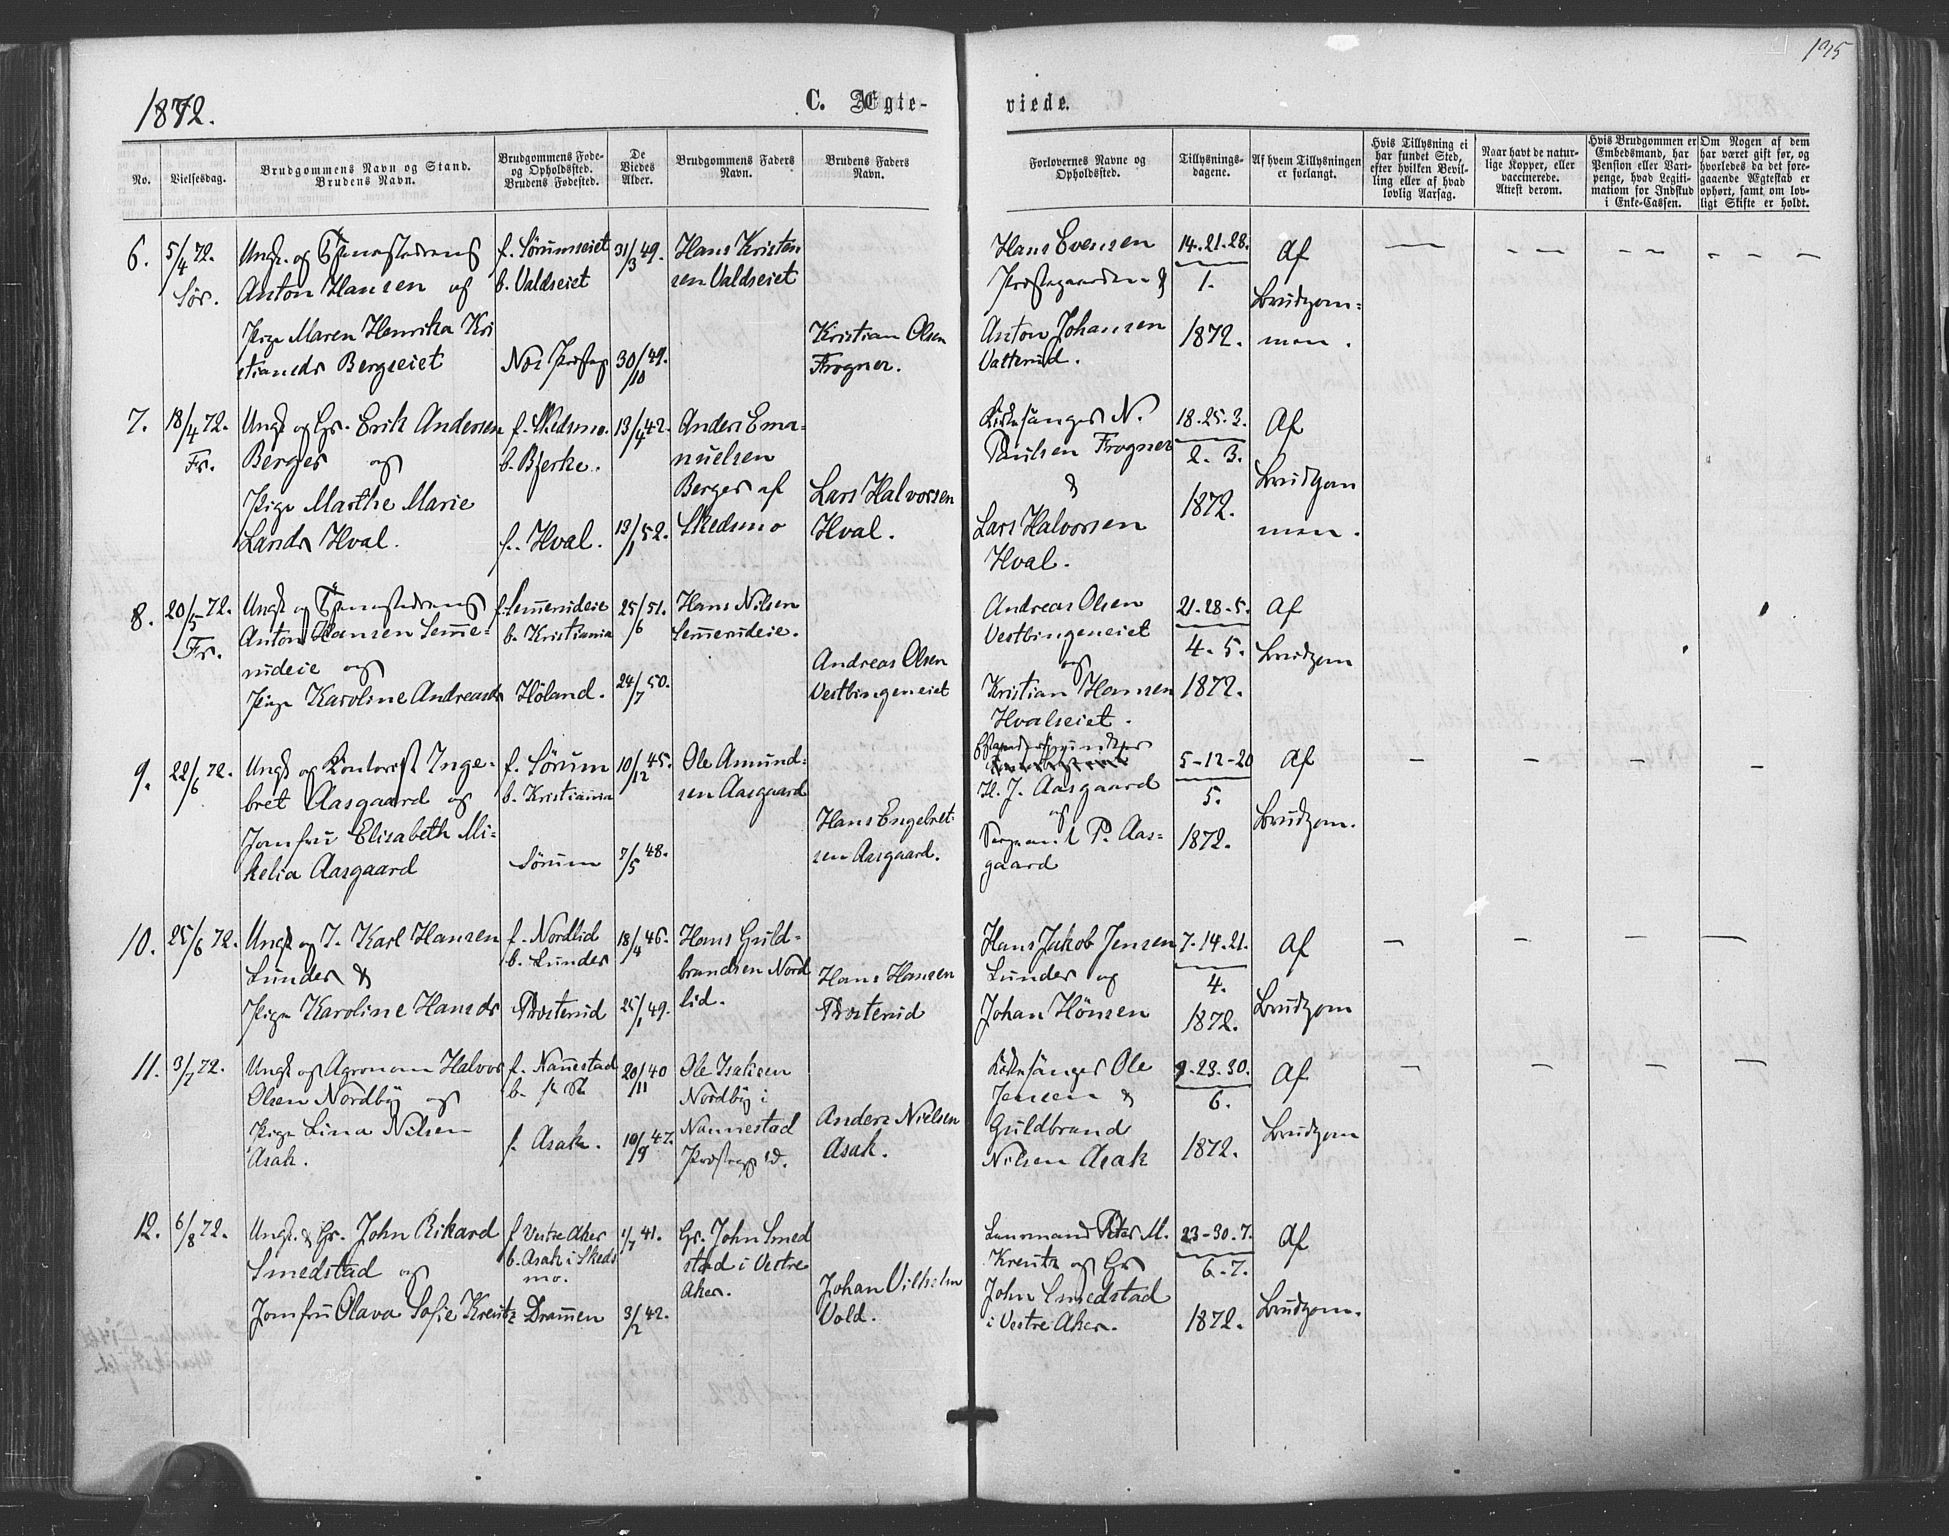 195
1872.
C. Ægte-
viede.
No.
Vielsesdag.
Brudgommens Navn og Stand.
Brudens Navn.
Brudgommens Føde-
og Opholdssted.
Brudens Fødested.
De
Viedes
Alder.
Brudgommens Faders
Navn.
Brudens Faders
Navn.
Forlovernes Navne og
Opholdssted.
Tillysnings-
dagene.
Af hvem Tillysningen
er forlangt.
Hvis Tillysning ei
har fundet Sted,
efter hvilken Bevil-
ling eller af hvad
lovlig Aarsag.
Naar havt de natur-
lige Kopper, eller
vaccinerede.
Attest derom.
Hvis Brudgommen er
Embedsmand, har
Pension eller Vart-
penge, hvad Legiti-
mation for Indskud
i Enke-Cassen.
Om Nogen af dem
har været gift før, og
hvorledes da det fore-
gaaende Ægteskab er
ophørt, samt om lov-
ligt Skifte er holdt.
6.
5/4 72.
Sør.
Ungk. og Tjenestedreng
Anton Hansen af
Pige Maren Henrika Kri
stiansdr Bergseiet
f. Sørumseiet
b. Valdseiet
Nes Præstegj
31/3 49.
30/10 49.
Hans Kristen
sen Valdseiet
Kristian Olsen
Frogner.
Hans Evensen
Præstegaarden &
Anton Johansen
Vatterud.
14. 21. 28.
1.
1872.
Af
Brudgom=
men.
7.
18/4 72.
Fr.
Ungk og Gr. Erik Andersen
Berger og
Pige Marthe Marie
Larsdr Hval.
f. Skedsmo.
b. Bjerke.
f. Hval.
13/4 42.
13/1 52.
Anders Ema=
nuelsen
Berger af
Skedsmo
Lars Halvorsen
Hval.
Kirkesanger N.
Paulsen Frogner
&
Lars Halvorsen
Hval.
18. 25. 3.
2. 3.
1872.
Af
Brudgom
men.
8.
20/5 72.
Fr.
Ungk og Tjenestedreng
Anton Hansen Semme=
rudeie og
Pige Karoline Andreasdr
f. Semmerudeie
b. Kristiania
Höland.
25/6 51.
24/7 50.
Hans Nilsen
Semmerudeie.
Andreas Olsen
Vestbingeneiet
Andreas Olsen
Vestbingeneiet
og
Kristian Hansen
Hvalseiet.
21. 28. 5.
4. 5.
1872.
Af
Brudgom
9.
22/6 72.
Ungk og Kontorist Inge=
bret Aasgaard og
Jomfru Elisabeth Mi=
kelia Aasgaard
f. Sørum
b. Kristiania
Sørum
10/12 45.
7/5 48.
Ole Amund=
sen Aasgaard
Hans Engebret=
sen Aasgaard.
H. J. Aasgaard
og
Sergeant P. Aas=
gaard
5-12-20
5.
1872.
Af
Brudgom.
10.
25/6 72.
Ungk og J. Karl Hansen
Lunder &
Pige Karoline Hansdr
f. Nordlid
b. Lunder
Præsterud
18/4 46.
25/1 49.
Hans Guld=
brandsen Nord
lid.
Hans Hansen
Præsterud
Hans Jakob Jensen
Lunder og
Johan Hönsen
7. 14. 21.
4.
1872.
Af
Brudgom
11.
3/7 72.
Ungk og Agronom Halvor
Olsen Nordby og
Pige Lina Nilsen
Asak.
f. Nannestad
b.
f. Asak.
20/11 40
10/9 47.
Ole Isaksen
Nordby i
Nannestad
Præstegj.
Anders Nielsen
Asak.
Kirkesanger Ole
Jensen &
Guldbrand
Nilsen Asak
9. 23. 30.
6.
1872.
Af
Brudgom
12.
6/8 72.
Ungk. & Gr. John Rikard
Smedstad og
Jomfru Olava Sofie Kreutz
f. Vestre Aker
b. Asak i Skeds
mo.
Drammen
1/7 41.
3/2 42.
Gr. John Smed
stad i Vestre
Aker.
Johan Vilhelm
Vold.
Lensmand Peter M.
Kreutz og Gr
John Smedstad
i Vestre Aker.
23-30. 7.
6-7.
1872.
Af
Brudgom.